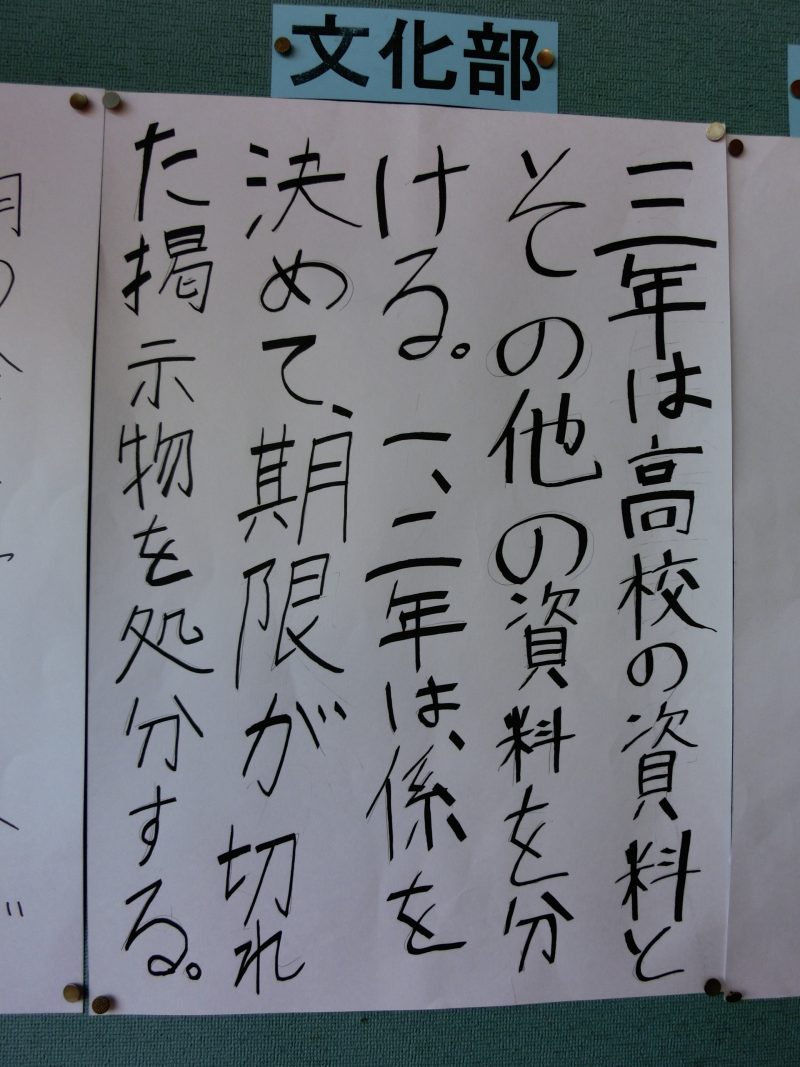 文化部
三年は高校の資料と
その他の資料を分
ける。一、二年は、係を
決めて、期限が切れ
た掲示物を処分する。